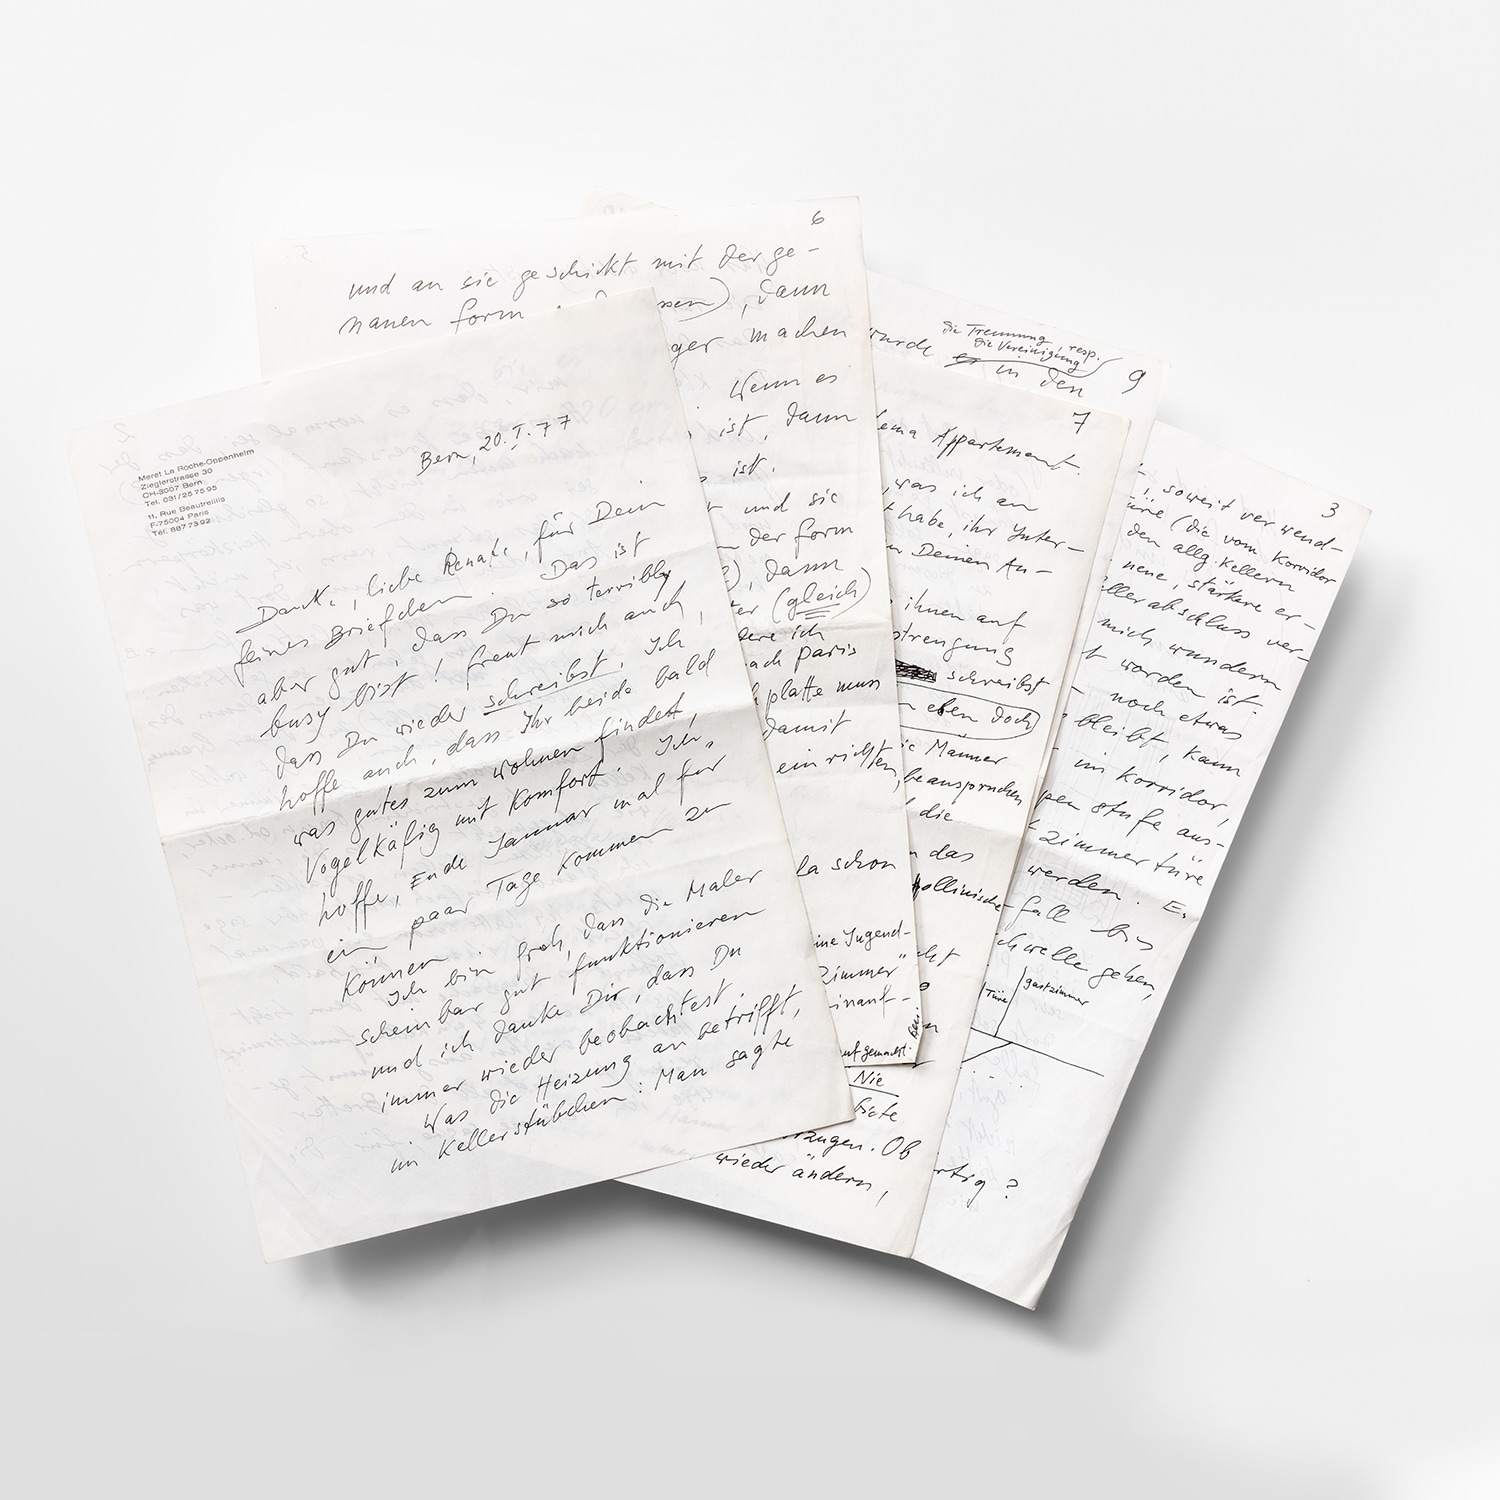 Meret La Roche-Oppenheim
Zieglerstrasse 30
CH-3007 Bern
Tel. 031/25 75 95
11, Rue Beautreillis
F-75004 Paris
Tél. 887 73 92
Bern, 20. I. 77
Danke, liebe Renate, für Dein
feines Briefchen. Das ist
aber gut, dass Du so terribly
busy bist! freut mich auch,
dass Du wieder schreibst. Ich
hoffe auch, dass Ihr beide bald
was gutes zum wohnen findet,
Vogelkäfig mit Komfort. Ich
hoffe, Ende Januar mal für
ein paar Tage kommen zu
können
Ich bin froh, dass die Maler
scheinbar gut funktionieren
und ich danke Dir, dass Du
immer wieder beobachtest.
Was die Heizung an betrifft,
im Kellerstübchen: Man sagte
6
und an sie geschickt mit der ge-
nauen form
, dann
ger machen
Wenn es
ist, dann
ist.
und sie
der form
), dann
(gleich)
dere ich
ach Paris
platte muss
damit
einrichten,
la schon
ine Jugend-
zimmer"
inauf-
auf gemacht.
9
wurde die Trennung, resp.
die Vereinigung
in den
7
Appartement.
was ich an
habe, ihr Inter-
Deinen An-
ihnen auf
strengung
schreibst
eben doch
Männer
beanspruchen
die
das
ollinische
Nie
Ob
wieder ändern,
3
soweit verwend-
(die vom Korridor
den allg. Kellern
neue, stärkere er-
ellerabschluss ver-
mich wundern
worden ist.
noch etwas
bleibt, kann
im Korridor,
pen stufe aus-
zimmertüre
werden. E.
fall bis
chwelle gehen,
Türe
gastzimmer
rtig?